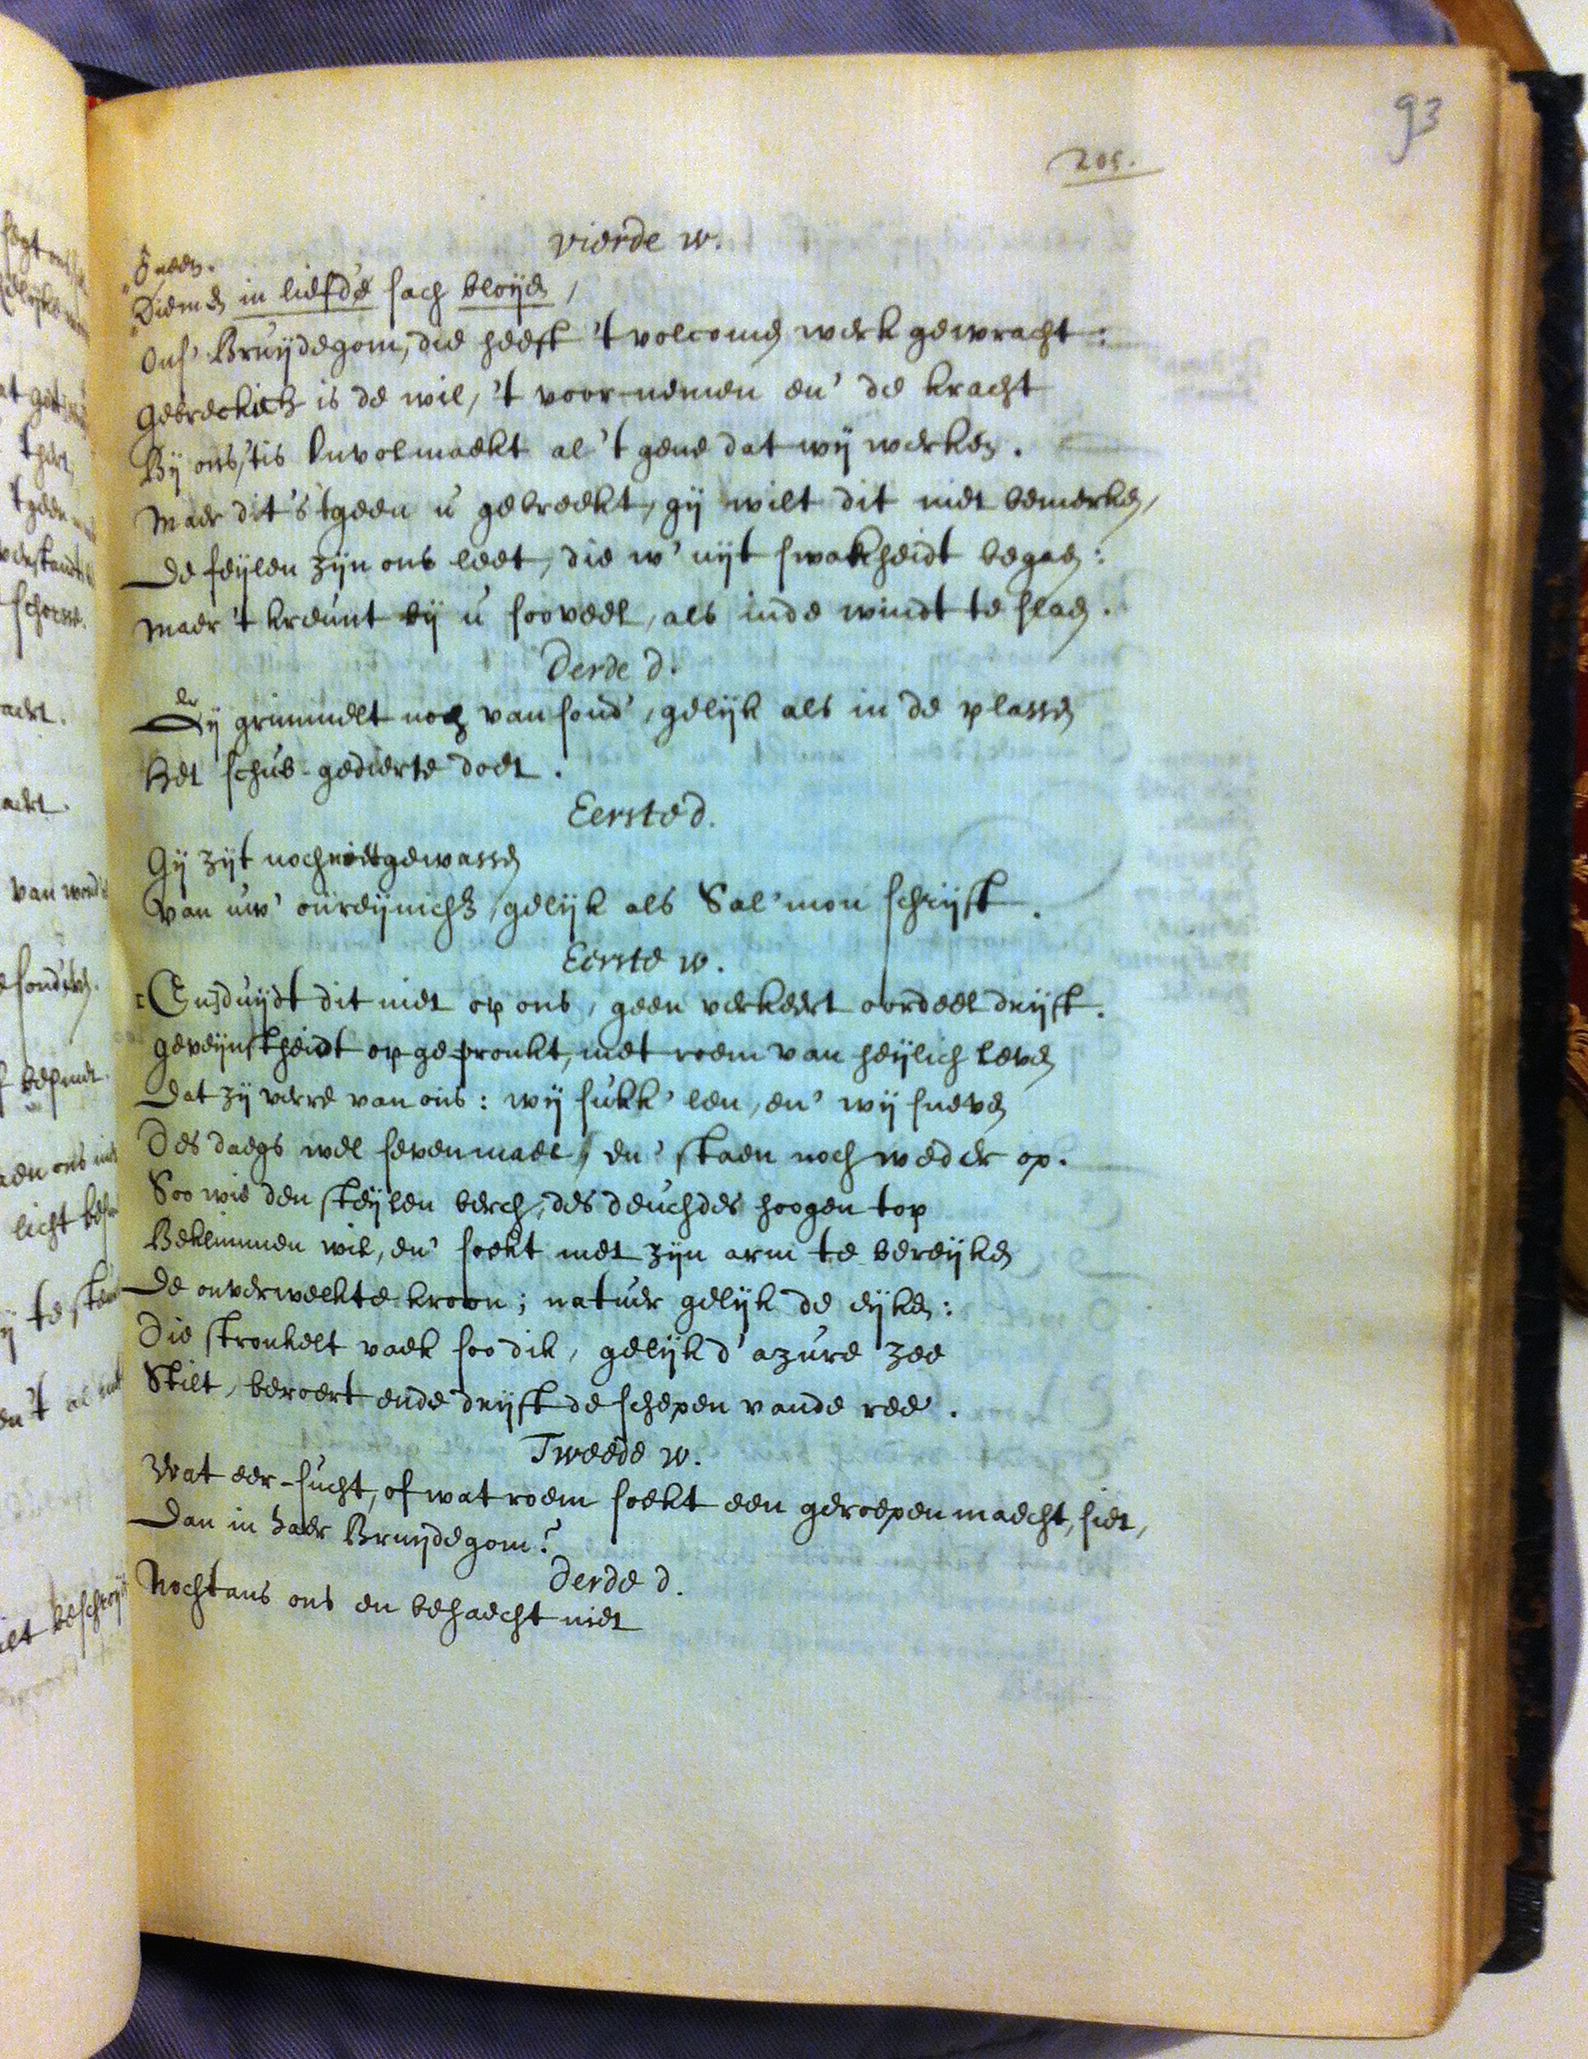 93
205.
Vierde w.
Diemen in liefde sach bloijen,
Ons' Bruijdegom, die heeft 't volcomen werk gewracht:
Gebrecklich is de wil, 't voor-nemen en' de kracht
Bij ons, 'tis Onvolmaekt al 't gene dat wij werken.
Maer dit 's 'tgeen u gebreekt, gij wilt dit niet bemerken,
De feijlen zijn ons leet, die w' uijt swakheidt begaen:
Maer 't kreunt bij u sooveel, als inde windt te slaen.
Derde d.
Gij grimmelt noch van sond', gelijk als in de plassen
Het schub-gedierte doet.
Eerste d.
Gij zijt noch niet gewassen
Van uw' onreijnich, gelijk als Sal'mon schrijft.
Eerste w.
En duijdt dit niet op ons, geen verkeert oordeel drijft.
Geveijnstheidt op gepronkt, met roem van heijlich leven
Dat zij verre van ons: wij sukk'len, en' wij sneven
Des daegs wel sevenmael, en' staen noch weder op.
Soo wie den steijlen berch, des deuchdes hoogen top
Beklimmen wil, en' soekt met zijn arm te bereijken
De onverwelkte kroon; natuer gelijk de eijken:
Die stronkelt vaek soo dik, gelijk d'azure zee
Stilt, beroert ende drijft de schepen vande ree.
Tweede w.
Wat eer-sucht, of wat roem soekt een geroepen maecht, siet,
Dan in haer Bruijdegom?
Derde d.
Nochtans ons en behaecht niet